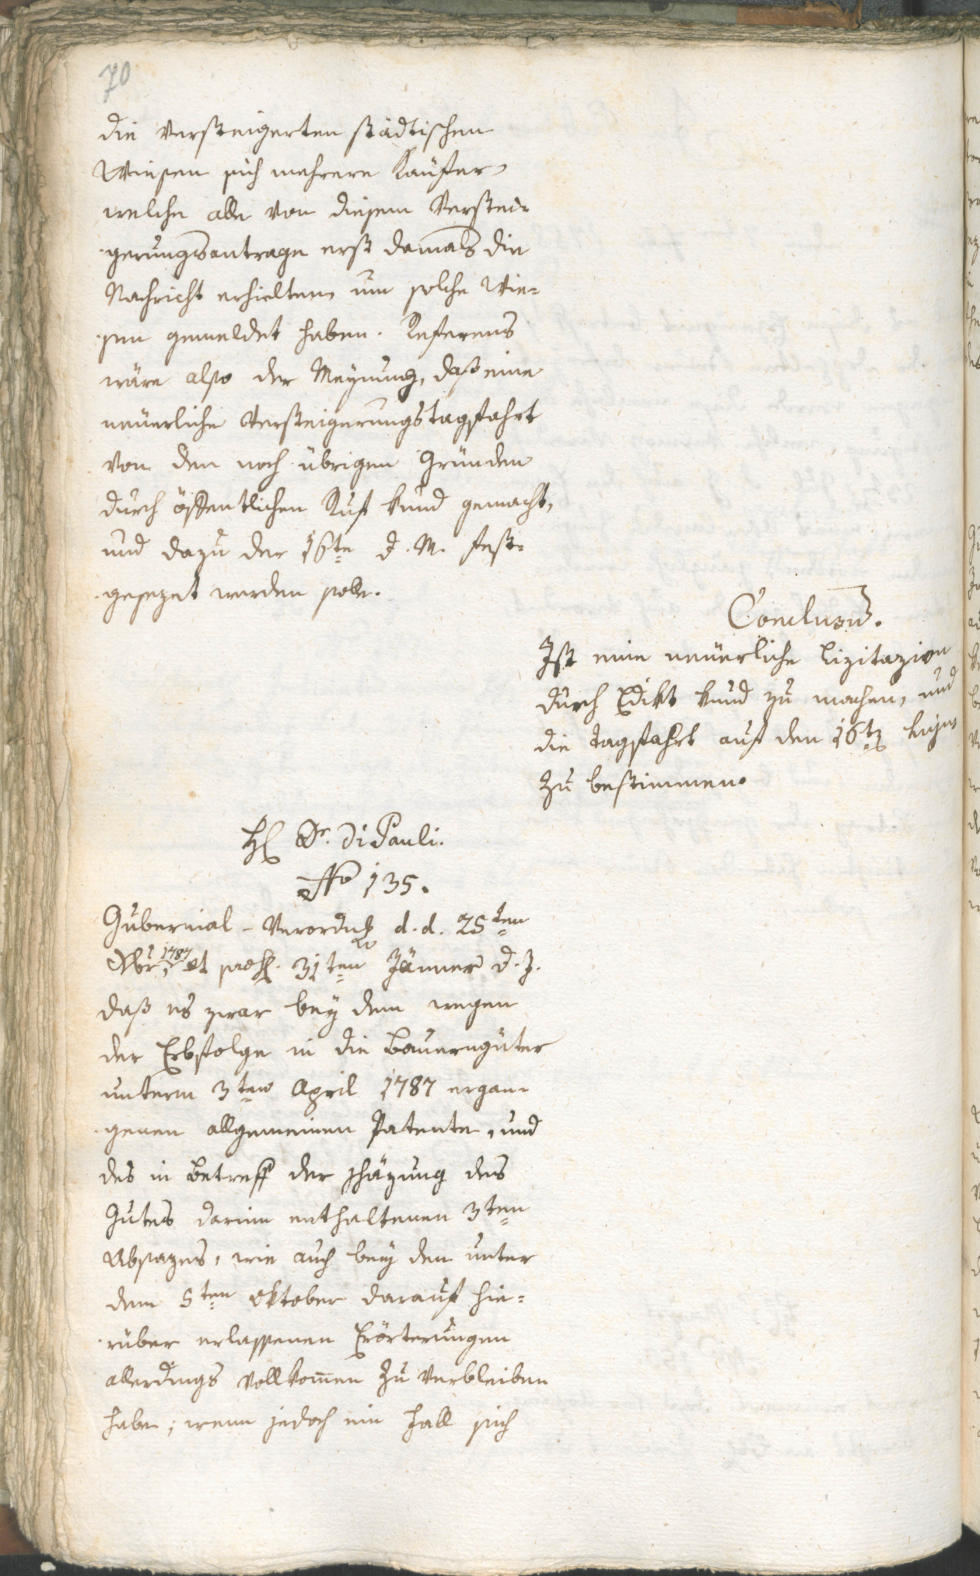 70
die versteigerten städtischen
Wiesen sich mehrere Kaüfer
welche alle von diesem Verstei-
gerungsantrage erst damals die
Nachricht erhielten, um solche Wie-
sen gemeldet haben. Referens
wäre also der Meynung, daß eine
neüerliche Versteigerungstagsfahrt
von den noch übrigen Gründen
durch öffentlichen Ruf kund gemacht,
und dazu der 16te d. M. fest-
gesezet werden solle.
Conclusum.
Ist eine neüerliche Lizitazion
durch Edikt kund zu machen, und
die Tagsfahrt auf den 16ten hujus
zu bestimmen.
H. Dr. Di Pauli.
No 135.
Gubernial-Verordng d. d. 25ten
Xbr 1787 et praes. 31ten Jänner d. J.
daß es zwar bey dem wegen
der Erbsfolge in die Bauerngüter
unterm 3ten April 1787 ergan-
genen allgemeinen Patente, und
des in Betreff der Shäzung des
Gutes darinn enthaltenen 3ten
Absazes, wie auch bey den unter
dem 5ten Oktober darauf hie-
rüber erlassenen Erörterungen
allerdings vollkommen zu verbleiben
habe; wenn jedoch ein Fall sich